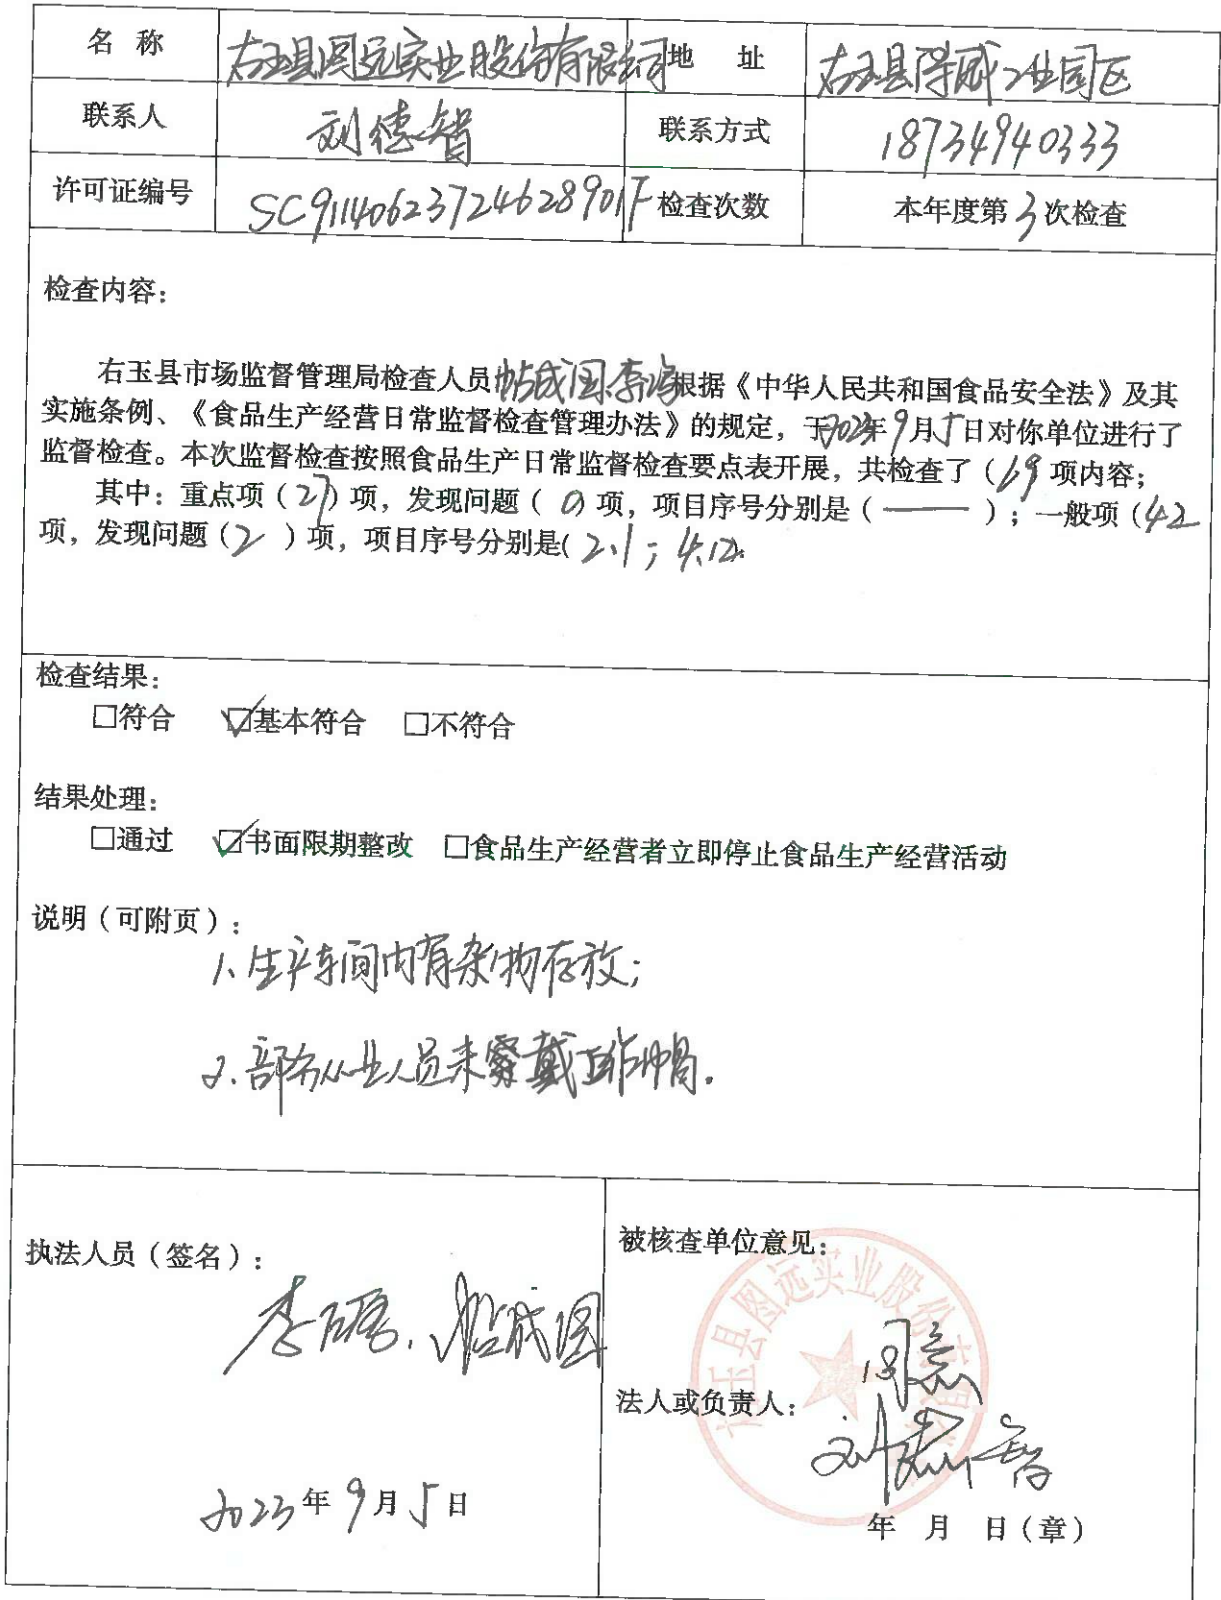 名 称 右玉县图远实业股份有限公司 地 址 右玉县威工业园区
联系人 刘德智 联系方式 18734940333
许可证编号 SC91140623724628901F 检查次数 本年度第3次检查
检查内容：
右玉县市场监督管理局检查人员 成国 李 根据《中华人民共和国食品安全法》及其
实施条例、《食品生产经营日常监督检查管理办法》的规定，于2023年9月5日对你单位进行了
监督检查。本次监督检查按照食品生产日常监督检查要点表开展，共检查了（69 项内容；
其中：重点项（27）项，发现问题（ 0）项，项目序号分别是（ —— ）；一般项（42
项，发现问题（2 ）项，项目序号分别是（ 2.1；4.12.
检查结果：
□符合 ☑基本符合 □不符合
结果处理：
□通过 ☑书面限期整改 □食品生产经营者立即停止食品生产经营活动
说明（可附页）：
1、生产车间内有杂物存放；
2、部分从业人员未穿戴工作帽.
执法人员（签名）：
李 、 成国
2023年9月5日
被核查单位意见：
同意
法人或负责人：
刘德智
年 月 日（章）
右玉县图远实业股份有限公司